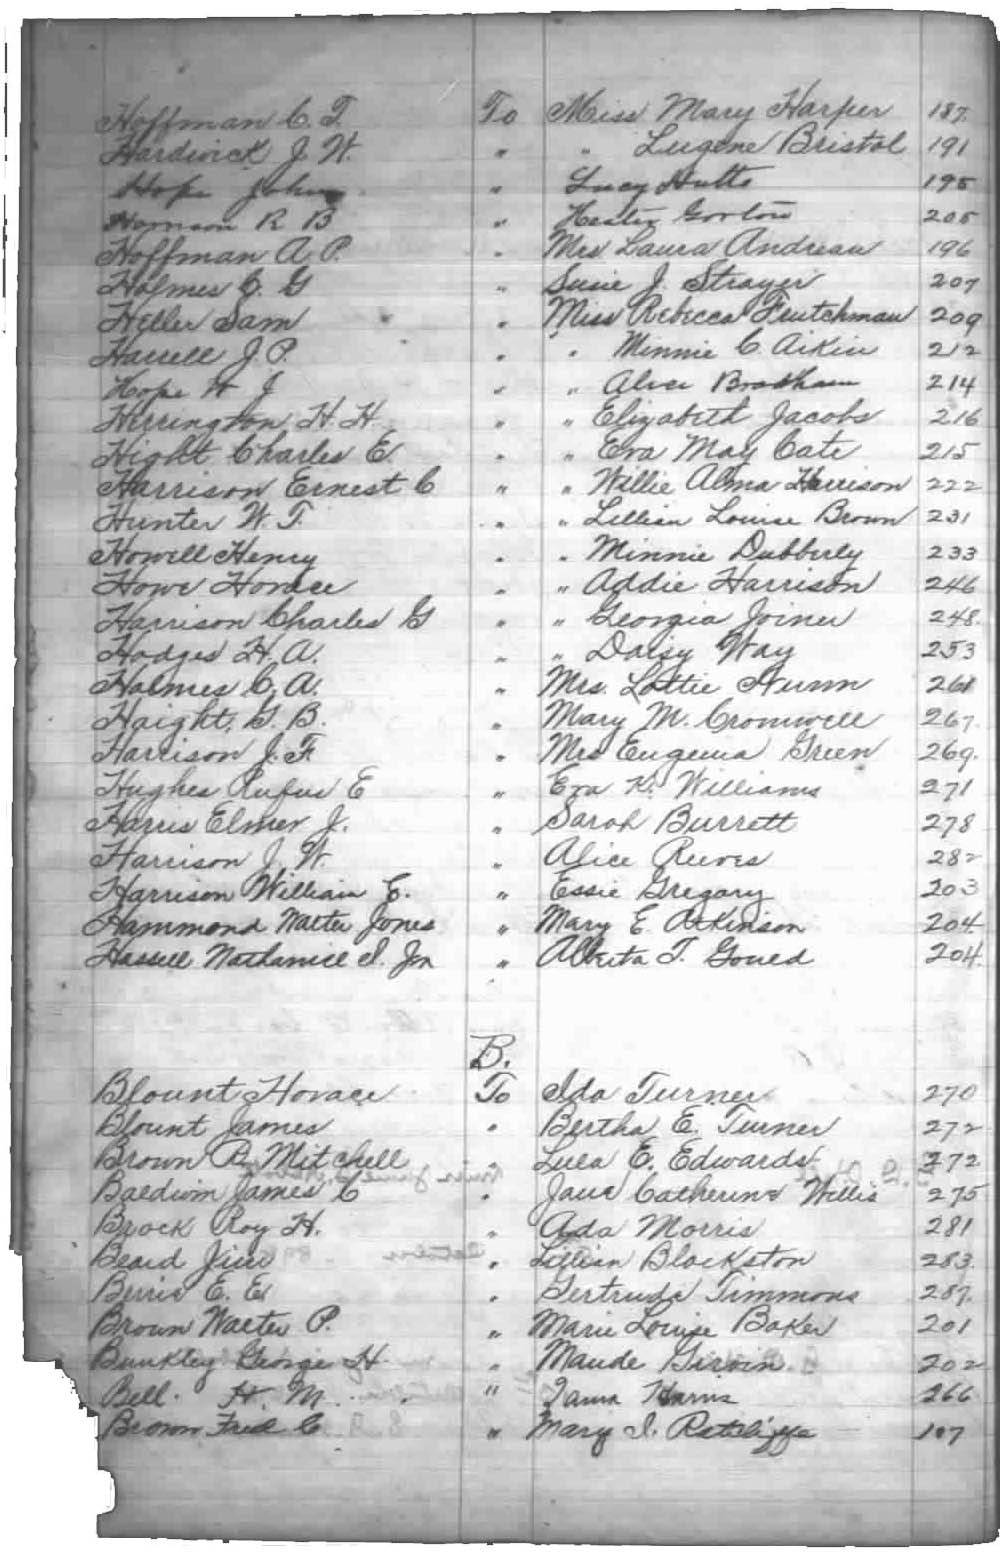 Hoffman C. T. To Miss Mary Harper 187.
Hardwick J. W. " " Eugene Bristol 191
Hope John " Lucy Hutto 195
Harrison R B " Hester Gorton 205
Hoffman A. P. " Mrs Laura Andreau 196
Holmes C. G " Susie J. Strayer 207
Heller Sam " Miss Rebecca Fleutchman 209
Harrell J. P. " " Minnie C. Aikin 212
Hope W J " " Alice Bradham 214
Herrington H. H. " " Elizabeth Jacobs 216
Hight Charles E. " " Eva May Cate 215
Harrison Ernest C " " Willie Alma Harrison 222
Hunter W. T. " " Lillian Louise Brown 231
Howell Henry " " Minnie Dubberly 233
Howe Horace " " Addie Harrison 246
Harrison Charles G " " Georgia Joiner 248.
Hodges H. A. " " Daisy Way 253
Holmes C. A. " Mrs. Lottie Nunn 261
Haight, G. B. " Mary M. Cromwell 267.
Harrison J. F. " Mrs Eugenia Green 269.
Hughes Rufus E " Eva K. Williams 271
Harris Elmer J. " Sarah Burrett 278
Harrison J. W. " Alice Reeves 282
Harrison William E. " Essie Gregory 203
Hammond Walter Jones " Mary E. Atkinson 204
Hassell Nathaniel I. Jr " Alberta T. Gould 204
B.
Blount Horace To Ida Turner 270
Blount James " Bertha E. Turner 272
Brown R. Mitchell " Lula E. Edwards 272
Baldwin James C " Jane Catherine Willis 275
Brock Roy H. " Ada Morris 281
Beard Jim " Lillian Blackston 283.
Berrie E. E. " Gertrude Timmons 287.
Brown Walter P. " Marie Louise Baker 201
Bunkley George H. " Maude Girvin 202
Bell. H. M. " Harris 266
Brown Fred C " Mary I. Ratcliffe 107